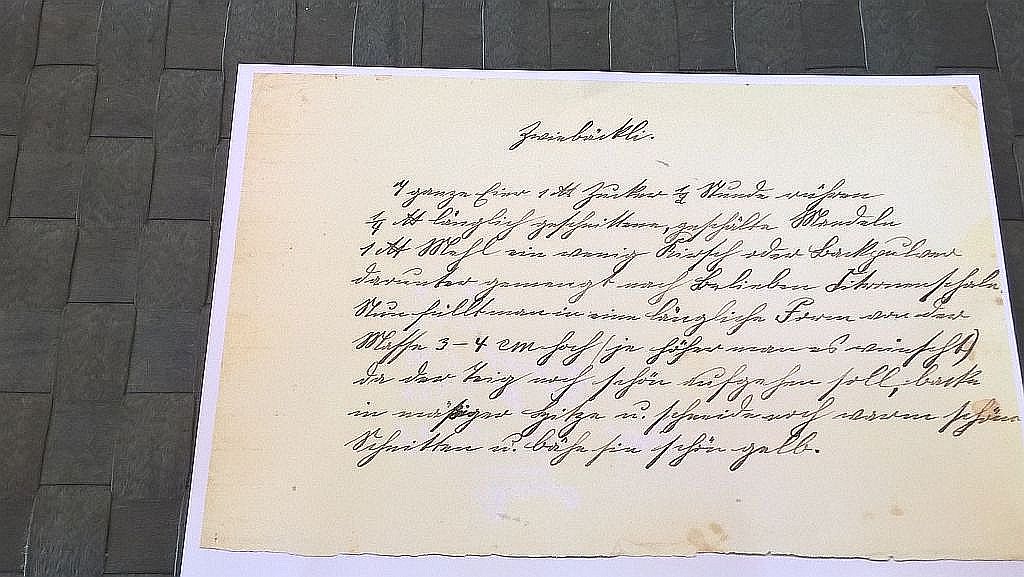 Zwiebäckli.
4 ganze Eier 1 ℔ Zucker ½ Stunde rühren
¼ ℔ länglich geschnittene, geschälte Mandeln
1 ℔ Mehl ein wenig Kirsch oder Backpulver
darunter gemengt nach Belieben Citronenschale.
Nun füllt man in eine längliche Form von der
Masse 3–4 cm hoch (je höher man es wünscht)
da der Teig noch schön aufgehen soll, backe
in mäßiger Hitze u. schneide noch warm schöne
Schnitten u. bähe sie schön gelb.